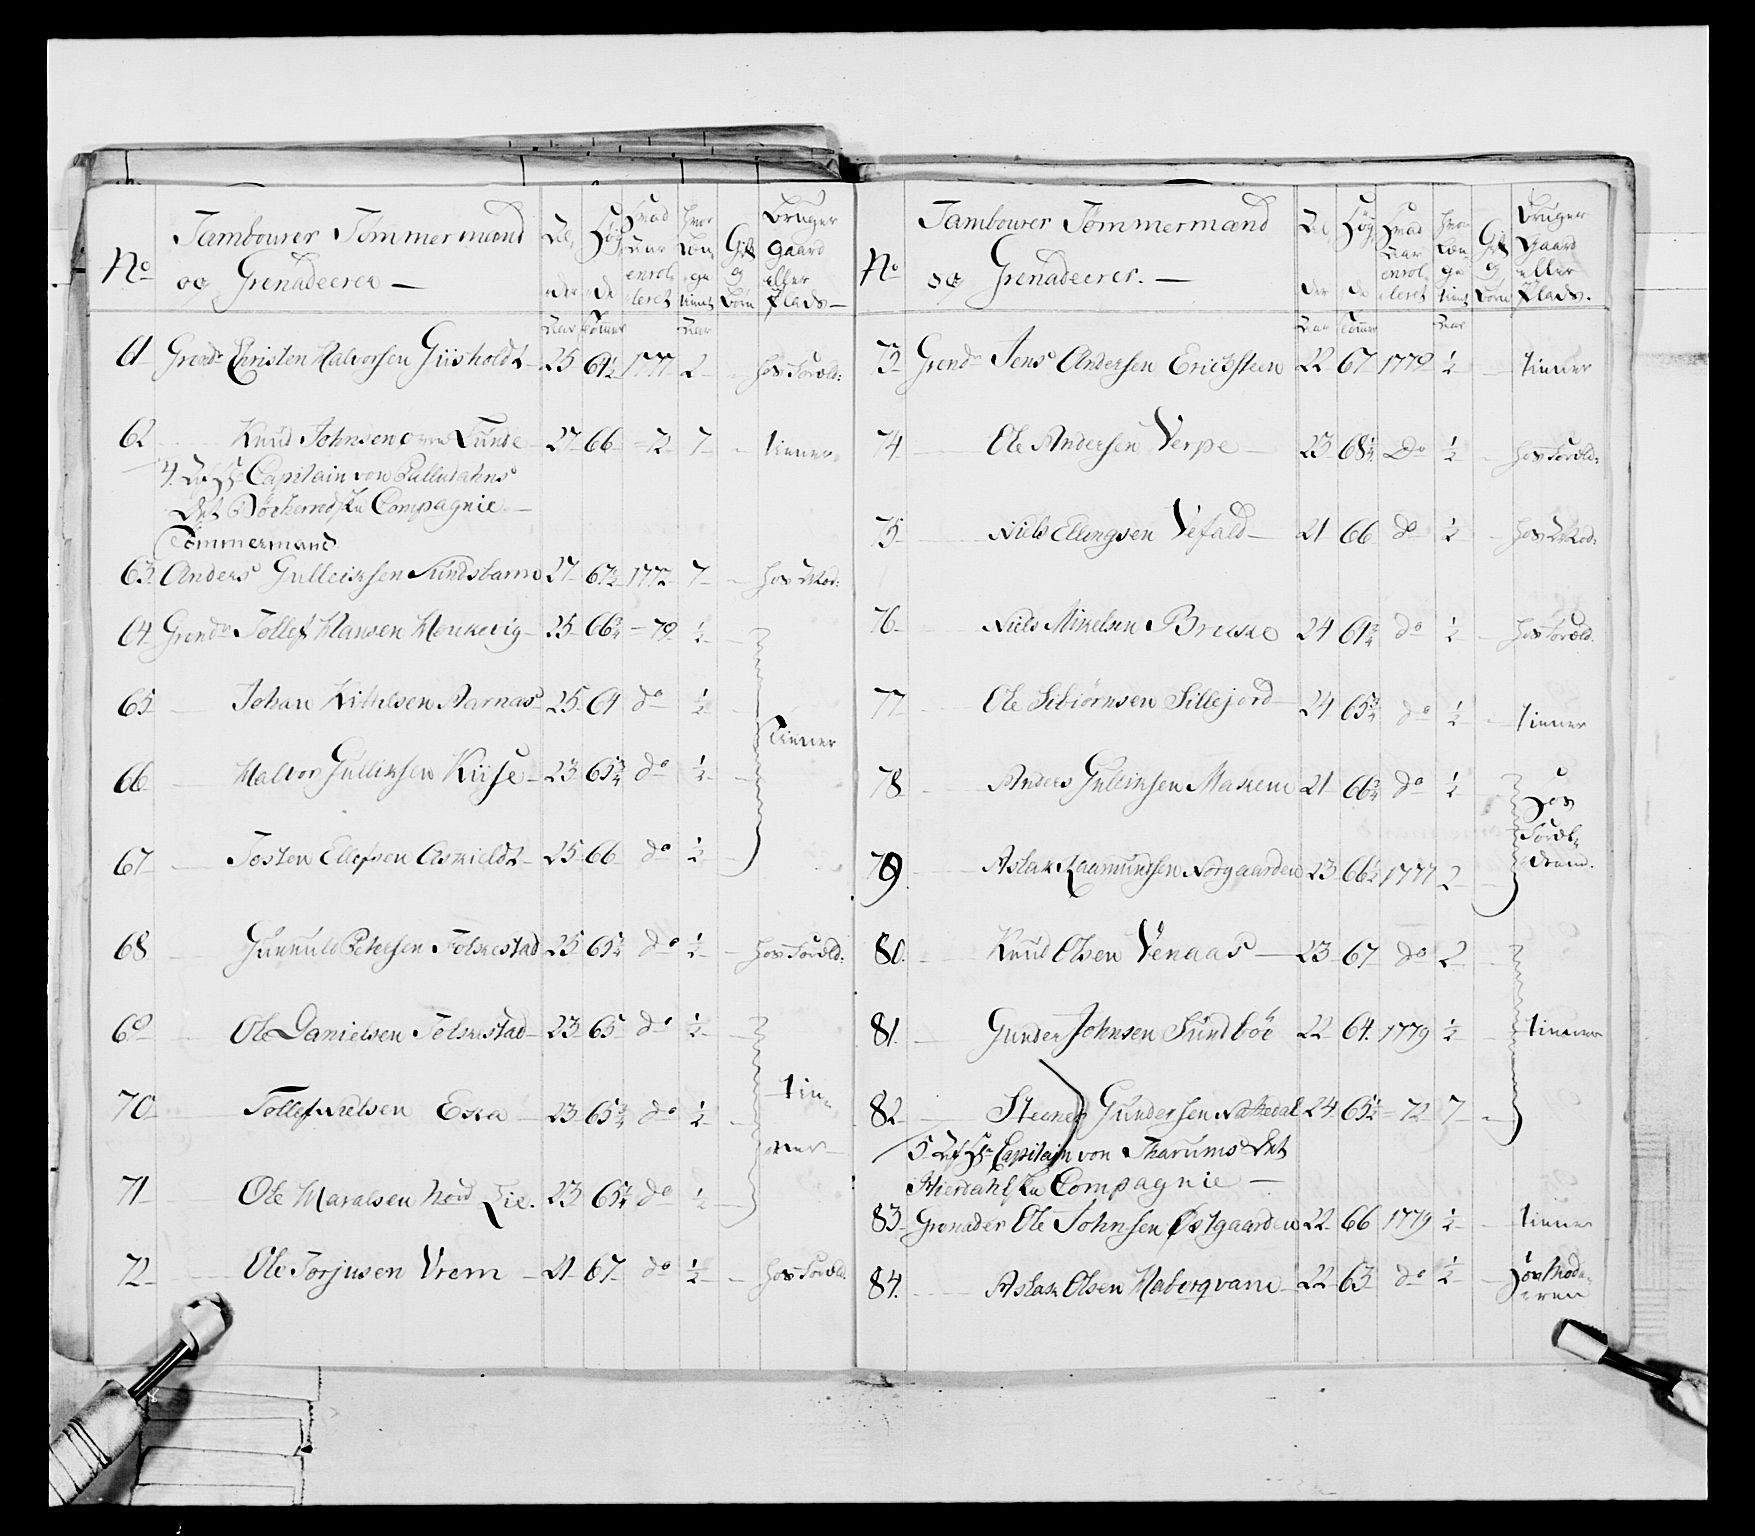 No Tambourer Tømmermænd og Grenadeerer — Al, der Aar Høj, de Tommer Hvad Aar enrol, leret Hvor Læn, ge tient Aar Gift og Børn Bruger Gaard eller Plads —
61 Grend Christen Halvorsen Giisholdt 25 64½ 1777 2 hos Foræld:
62 Knud Johnsen Lunde 27 66 = 72 7 tiener
4. Capitain von
Compagnie
Tømmermand
63 Anders Gulleichsen Sundsbarm 27 67½ 1772 7 hos Mod:
64 Grend Tollef Hansen 25 66¾ = 79 ½
65 Johan Kittelsen Aarnæs 25 64 do ½ tiener
66 Halvor Gullichsen Kiise 23 65¾ do ½
67 Josten Ellefsen Askieldt 25 66 do ½
68 Gunnuld Petersen Folkestad 25 65¾ do ½ hos Foræld:
69 Ole Danielsen Folkestad 23 65 do ½
70 Tollef Nielsen Eska 23 65¾ do ½ tie,
ner
71 Ole Haralsen Nord Lie. 23 65¾ do ½
72 Ole Torjusen Vrem 21 67 do ½ hos Foræld:
No Tambourer Tømmermænd og Grenadeerer. — Al, der Aar Høj, de Tommer Hvad Aar enrol, leret Hvor Læn, ge tient Aar Gift og Børn Bruger Gaard eller Plads.
73 Grend Jens Andersen Erichsteen 22 67 1779 ½ tiener
74 Ole Andersen Verpe 23 68¼ Do ½ hos Foræld:
75 Niels Ellingsen Vefald 21 66 do ½ hos Mod:
76 Niels Mikelsen Breske 24 64¾ do ½ hos Foræld.
77 Ole Sibiørnsen Sillejord 24 65¾ do ½ tiener
78 Anders Gulleichsen 21 66¾ do ½ hos
Foræl,
drene.
79 Aslak Raamundsen Norgaarden 23 66½ 1777 2
80. Knud Olsen Venaas 23 67 do 2
81. Gunder Johnsen Sundbøe 22 64. 1779 ½ tiener
82 Steener Gundersen 24 65½ = 72 7
5 Capitain von Tharums Det
Hierdahlske Compagnie —
83 Grenader Ole Johnsen Østgaarden 22 66 1779 ½ tiener
84. Aslak Olsen Haberqvam 22 63 do ½ hos Mode,
ren